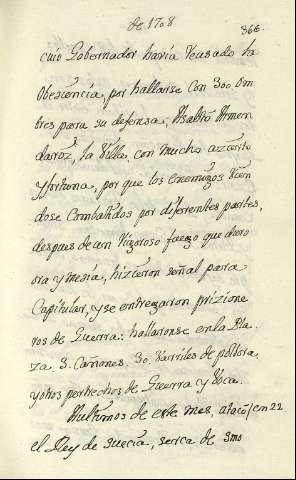 de 1708
366.
cuio Gobernador havia reusado la
obediencia, por hallarse con 300 om
bres para su defensa; Asaltò Armen
dariz, la Villa, con mucho azierto
y fortuna, por que los enemigos vien
dose combatidos por diferentes partes,
despues de un vigoroso fuego que duro
ora y media, hizieron señal para
Capitular, y se entregaron prizione
ros de Guerra: hallaronse en la Pla
za, 3. Cañones, 30. varriles de polvora,
y otros pertrechos de Guerra y voca.
A ultimos de este mes, atacó (en 22
el Rey de suecia, serca de